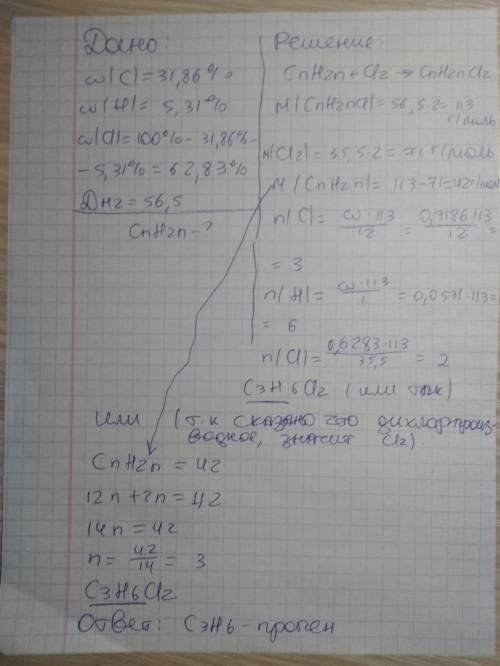 Дано:
ω(C)=31,86%
ω(H)= 5,31%
ω(Cl)=100%-31,86%-
-5,31%=62,83%
DH2=56,5
CnH2n-?
Решение:
CnH2n+Cl2→CnH2nCl2
M(CnH2nCl)=56,5·2=113
г/моль
M(Cl2)=35,5·2=71 г/моль
M(CnH2n)=113-71=42г/моль
n(C)= ω·113/12 = 0,3186·113/12 =
= 3
n(H)= ω·113/1 = 0,0531·113=
= 6
n(Cl)= 0,6283·113/35,5 = 2
C3H6Cl2 (или так)
или (т.к сказано что дихлорпроиз-
водное, значит Cl2).
CnH2n = 42
12n+2n=42
14n=42
n= 42/14 = 3
C3H6Cl2
Ответ: C3H6-пропен